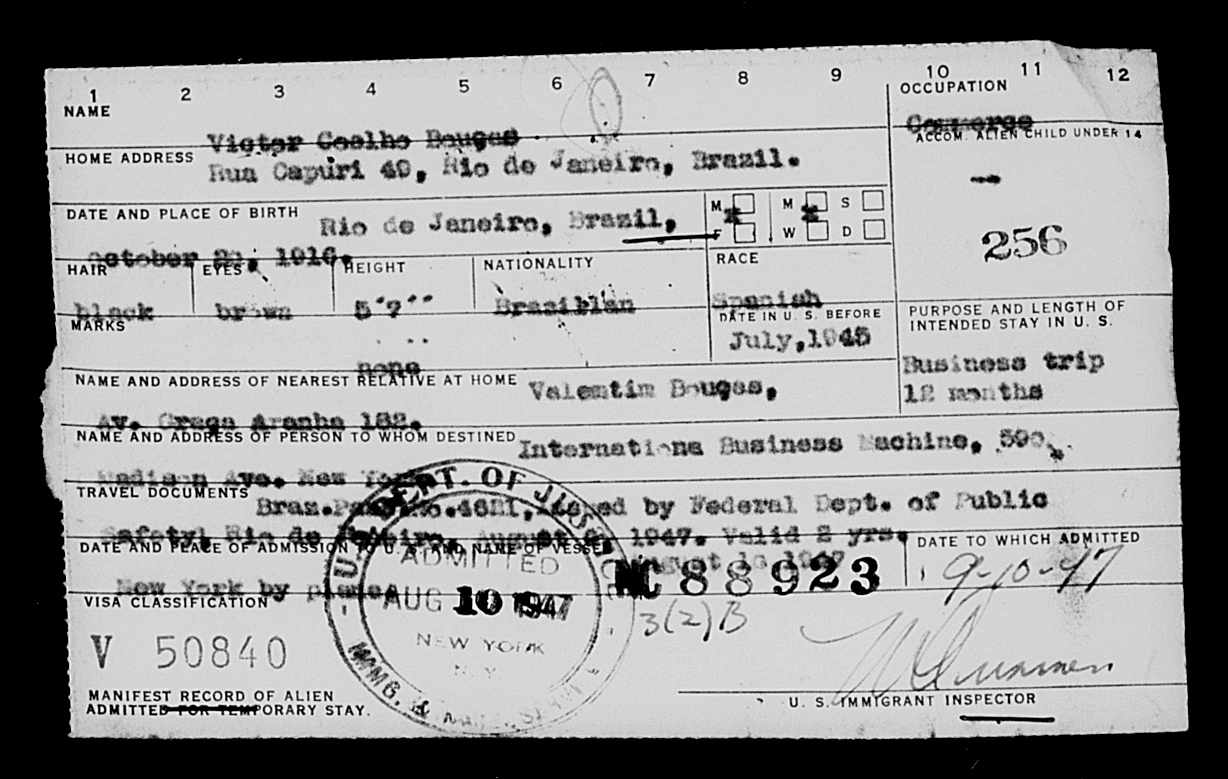 1 2 3 4 5 6 7 8 9 10 11 12
NAME
OCCUPATION
Victor Coelho Bouças
Commerce
HOME ADDRESS
ACCOM. ALIEN CHILD UNDER 14
Rua Capuri 40, Rio de Janeiro, Brazil.
--
DATE AND PLACE OF BIRTH Rio de Janeiro, Brazil,
M X F
M X S
W D
256
October 1916.
HAIR EYES HEIGHT NATIONALITY RACE
black brown 5'7'' Brazilian Spanish
MARKS
DATE IN U. S. BEFORE
PURPOSE AND LENGTH OF
INTENDED STAY IN U. S.
July, 1945
none
Business trip
12 months
NAME AND ADDRESS OF NEAREST RELATIVE AT HOME Valentim Bouças,
Av. Graça Aranha 182.
NAME AND ADDRESS OF PERSON TO WHOM DESTINED Internationa Business Machine, 590,
Madison Ave. New York
TRAVEL DOCUMENTS Braz. issued by Federal Dept. of Public
Safety, Rio de Janeiro, August 1947. Valid 2 yrs.
DATE AND PLACE OF ADMISSION TO U. S. AND NAME OF VESSEL August 10 1947
DATE TO WHICH ADMITTED
9-10-47
New York by plane
NC 88923
VISA CLASSIFICATION
3(2)B
V 50840
U. S. DEPT. OF JUSTICE
ADMITTED
AUG 10 1947
NEW YORK
N.Y.
IMMG. & NATZ. SERV.
MANIFEST RECORD OF ALIEN
ADMITTED FOR TEMPORARY STAY.
U. S. IMMIGRANT INSPECTOR